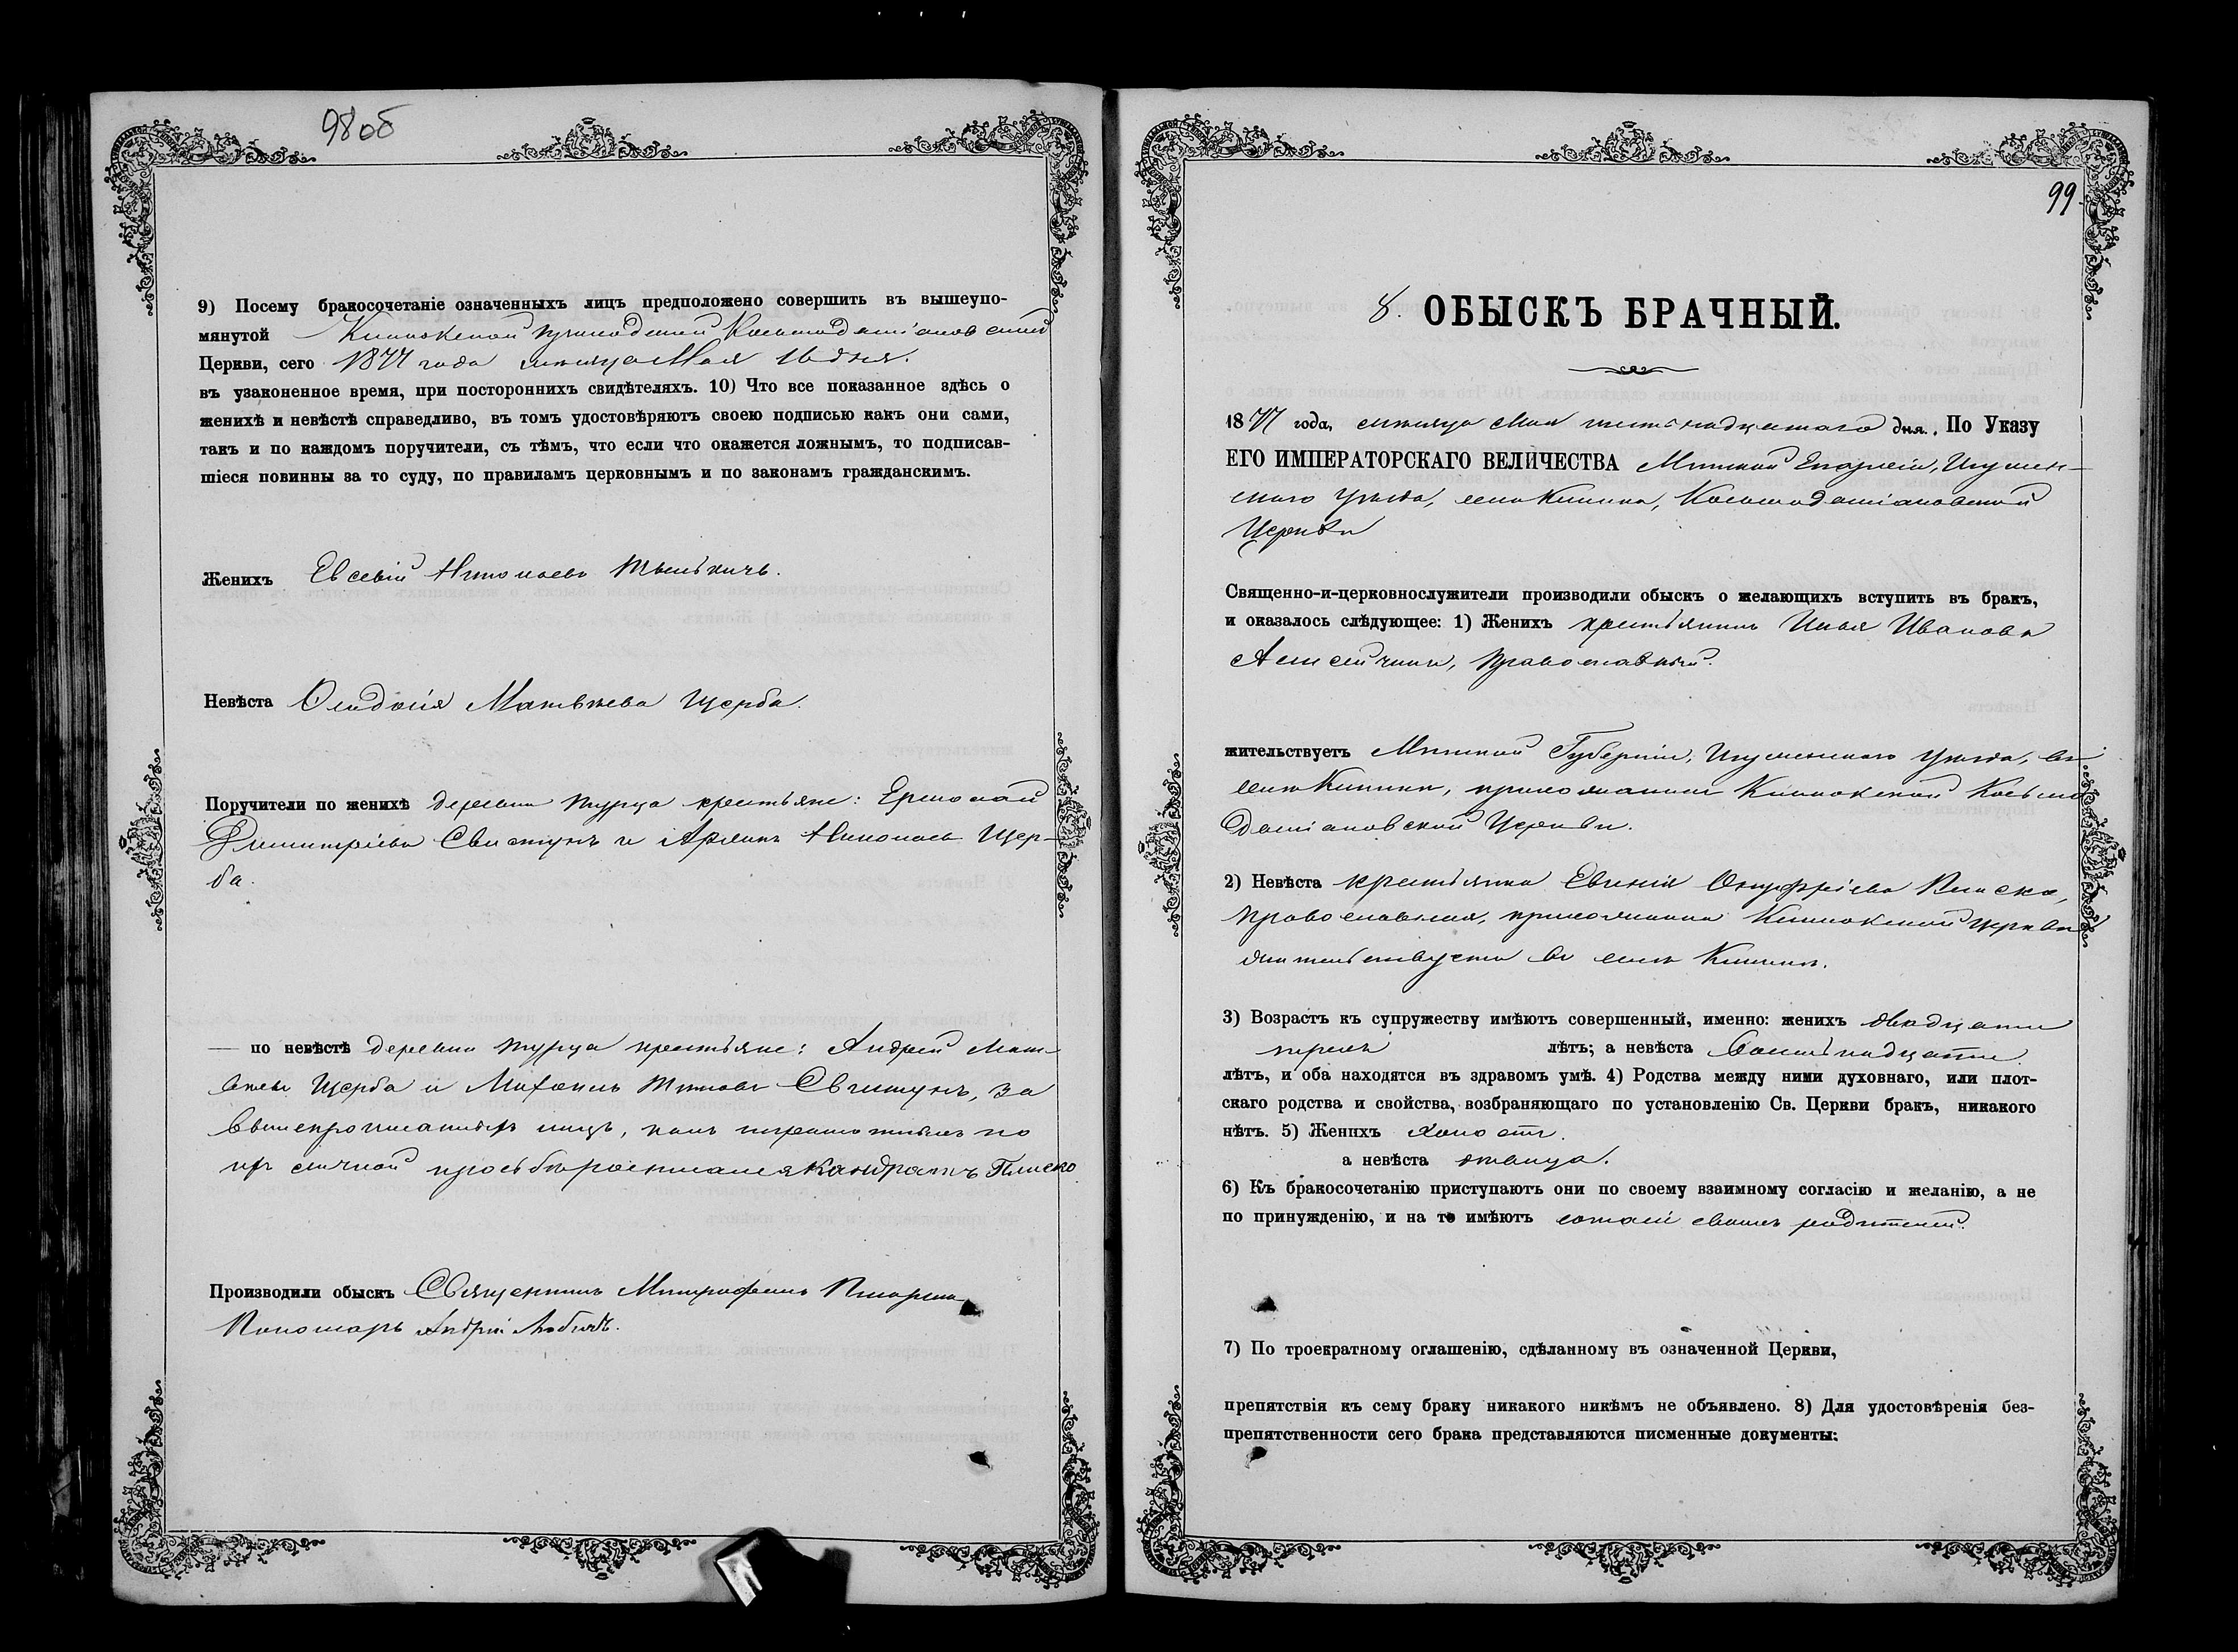 98об
9) Посему бракосочетаніе означенныхъ лицъ предположено совершить въ вышеупо-
мянутой приходской Космодаміановской
Церкви, сего 1877 года мѣсяца Мая 16 дня.
въ узаконенное время, при постороннихъ свидѣтеляхъ. 10) Что все показанное здѣсь о
женихѣ и невѣстѣ справедливо, въ томъ удостовѣряютъ своею подписью какъ они сами,
такъ и по каждомъ поручители, съ тѣмъ, что если что окажется ложнымъ, то подписав-
шіеся повинны за то суду, по правиламъ церковнымъ и по законамъ гражданскимъ.
Женихъ Евсевій Николаевъ
Невѣста Матвѣева Щерба.
Поручители по женихѣ деревни Турца крестьяне: Ермолай
Димитріевъ Свистунъ и Николаевъ Щер-
ба.
— по невѣстѣ деревни Турца крестьяне: Андрей Мат-
вѣевъ Щерба и Михаилъ Титовъ Свистунъ, за
вышепрописанныхъ лицъ, какъ неграмотныхъ по
ихъ личной просьбѣ росписался Кандратъ Плиско
Производили обыскъ Священникъ Митрофанъ
Пономарь Андрей
99.
8. ОБЫСКЪ БРАЧНЫЙ.
1877 года, мѣсяца Мая шестнадцатаго дня. По Указу
ЕГО ИМПЕРАТОРСКАГО ВЕЛИЧЕСТВА Минской Епархіи, Игумен-
скаго уѣзда, села Космодаміановской
Церкви
Священно-и-церковнослужители производили обыскъ о желающихъ вступить въ бракъ,
и оказалось слѣдующее: 1) Женихъ крестьянинъ Илья Ивановъ
православный.
жительствуетъ Минской Губерніи, Игуменскаго уѣзда, въ
селѣ прихожанинъ Косьмо
даміановской Церкви.
2) Невѣста крестьянка Евгенія Онуфріева Плиско,
православная, прихожанка церкви
жительствуетъ въ селѣ
3) Возрастъ къ супружеству имѣютъ совершенный, именно: женихъ двадцати
трехъ лѣтъ; а невѣста восьмнадцати
лѣтъ, и оба находятся въ здравомъ умѣ. 4) Родства между ними духовнаго, или плот-
скаго родства и свойства, возбраняющаго по установленію Св. Церкви бракъ, никакого
нѣтъ. 5) Женихъ холостъ.
а невѣста дѣвица.
6) Къ бракосочетанію приступаютъ они по своему взаимному согласію и желанію, а не
по принужденію, и на то имѣютъ согласіе своихъ родителей.
7) По троекратному оглашенію, сдѣланному въ означенной Церкви,
препятствія къ сему браку никакого никѣмъ не объявлено. 8) Для удостовѣренія без-
препятственности сего брака представляются писменные документы: